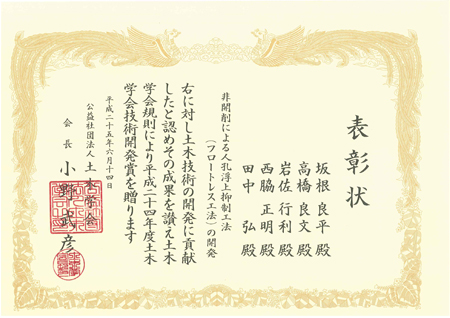 表彰状
坂根 良平 殿
高橋 良文 殿
岩佐 行利 殿
西脇 正明 殿
田中 弘 殿
非開削による人孔浮上抑制工法
(フロートレス工法)の開発
右に対し土木技術の開発に貢献
したと認めその成果を讃え土木
学会規則により平成二十四年度土木
学会技術開発賞を贈ります
平成二十五年六月十四日
公益社団法人 土木学会
会長 小野武彦